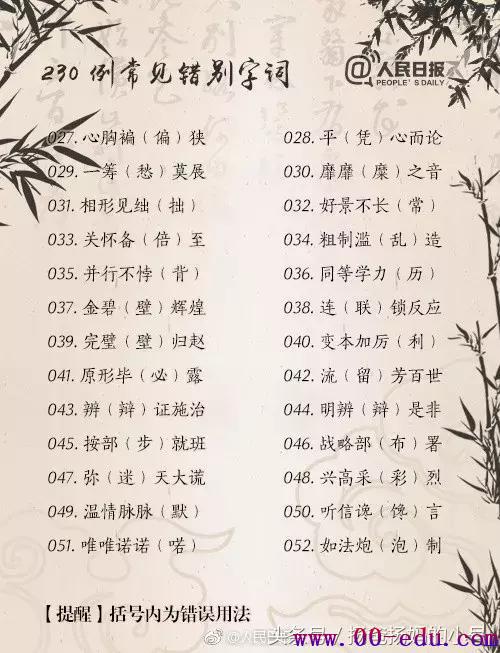 230 例常见错别字词
@人民日报
PEOPLE'S DAILY
027. 心胸褊（偏）狭
028. 平（凭）心而论
029. 一筹（愁）莫展
030. 靡靡（糜）之音
031. 相形见绌（拙）
032. 好景不长（常）
033. 关怀备（倍）至
034. 粗制滥（乱）造
035. 并行不悖（背）
036. 同等学力（历）
037. 金碧（壁）辉煌
038. 连（联）锁反应
039. 完璧（壁）归赵
040. 变本加厉（利）
041. 原形毕（必）露
042. 流（留）芳百世
043. 辨（辩）证施治
044. 明辨（辩）是非
045. 按部（步）就班
046. 战略部（布）署
047. 弥（迷）天大谎
048. 兴高采（彩）烈
049. 温情脉脉（默）
050. 听信谗（馋）言
051. 唯唯诺诺（喏）
052. 如法炮（泡）制
【提醒】括号内为错误用法
www.00-edu.com